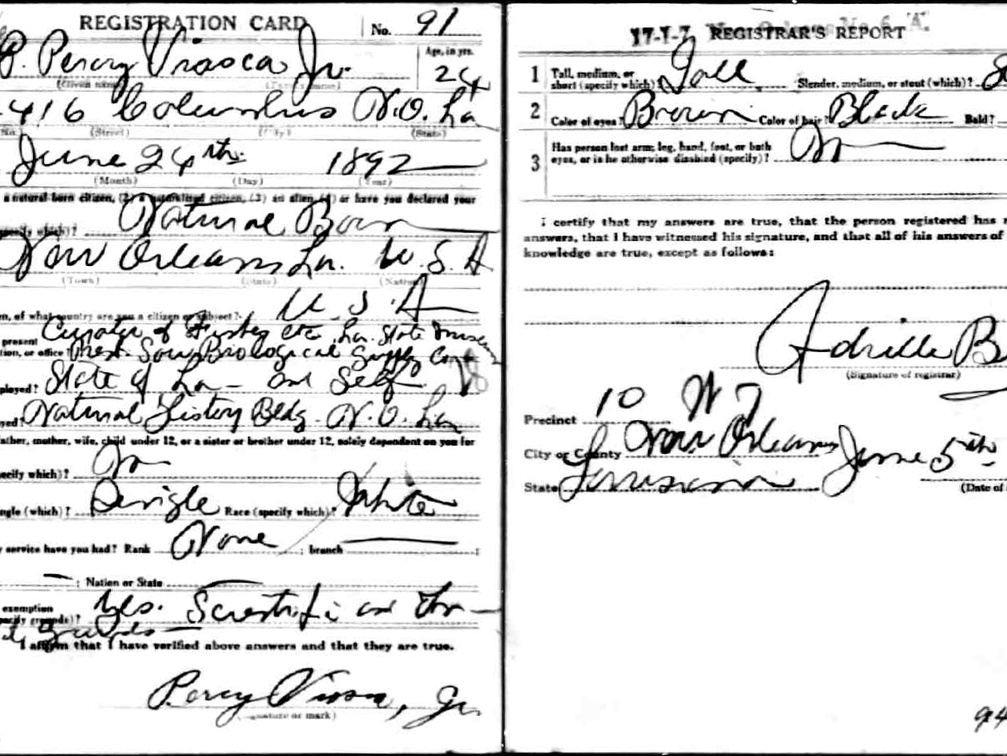 REGISTRATION CARD No. 91
P. Percy Viosca Jr. Age, in yrs. 24
(Given name) (Family name)
416 Columbus N.O. La
No. (Street) (City) (State)
June 24th 1892
(Month) (Day) (Year)
a natural-born citizen, (2) a naturalized citizen, (3) an alien, (4) or have you declared your
specify which)? Natural Born
New Orleans La. U.S.A
(Town) (State) (Nation)
en, of what country are you a citizen or subject? U.S.A
present Curator of Fishes etc La. State Museum
tion, or office? Prest. Sou Biological Supply Co
18
ployed? State of La — and Self
yed? Natural History Bldg. N.O. La
ather, mother, wife, child under 12, or a sister or brother under 12, solely dependent on you for
ecify which)? No
ngle (which)? Single Race (specify which)? White
y service have you had? Rank None ; branch ;
; Nation or State
exemption Yes. Scientific
pecify grounds)? grounds
I affirm that I have verified above answers and that they are true.
Percy Viosca, Jr.
(Signature or mark)
17-1-7 REGISTRAR'S REPORT
1 Tall, medium, or short (specify which)? Tall Slender, medium, or stout (which)? S
2 Color of eyes? Brown Color of hair? Black Bald?
3 Has person lost arm, leg, hand, foot, or both eyes, or is he otherwise disabled (specify)? No
I certify that my answers are true, that the person registered has r
answers, that I have witnessed his signature, and that all of his answers of
knowledge are true, except as follows:
B
(Signature of registrar)
Precinct 10 W 7
City or County New Orleans June 5th
State Louisiana (Date of
94